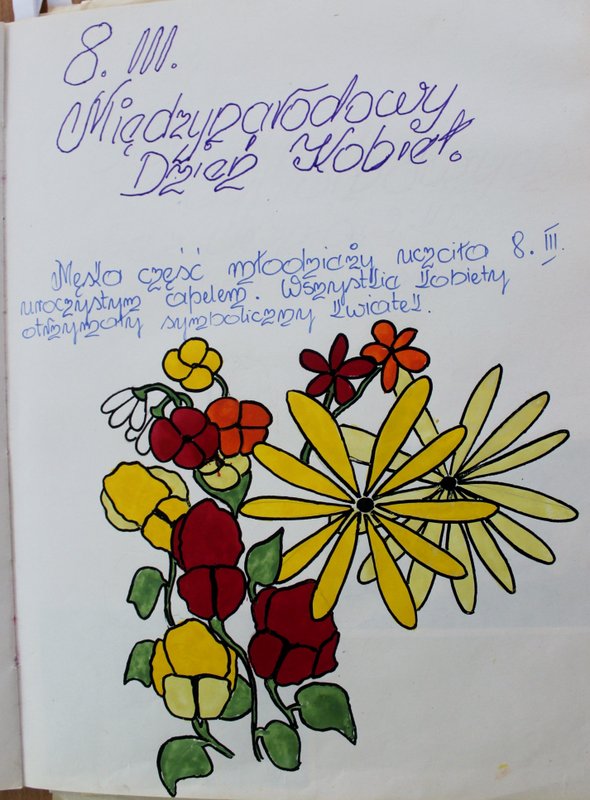 8. III.
Międzynarodowy
Dzień Kobiet.
Męska część młodzieży uczciła 8. III.
uroczystym apelem. Wszystkie kobiety
otrzymały symboliczny kwiatek.